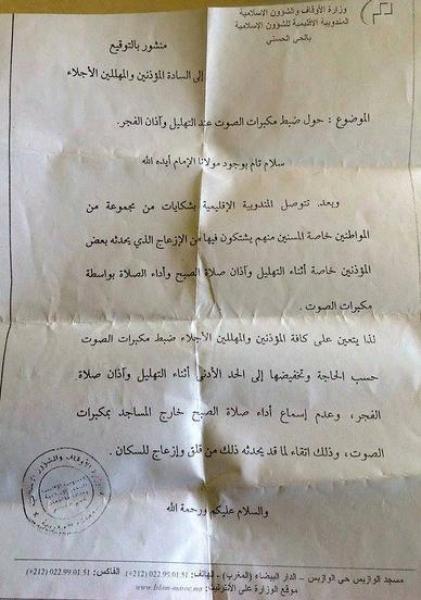 وزارة الأوقاف والشؤون الإسلامية
المندوبية الإقليمية للشؤون الإسلامية
بالحي الحسني
منشور بالتوقيع
إلى السادة المؤذنين والمهللين الأجلاء
الموضوع : حول ضبط مكبرات الصوت عند التهليل وآذان الفجر.
سلام تام بوجود مولانا الإمام أيده الله
وبعد. تتوصل المندوبية الإقليمية بشكايات من مجموعة من
المواطنين خاصة المسنين منهم يشتكون فيها من الإزعاج الذي يحدثه بعض
المؤذنين خاصة أثناء التهليل وآذان صلاة الصبح وأداء الصلاة بواسطة
مكبرات الصوت .
لذا يتعين على كافة المؤذنين والمهللين الأجلاء ضبط مكبرات الصوت
حسب الحاجة وتخفيضها إلى الحد الأدنى أثناء التهليل وآذان صلاة
الفجر، وعدم إسماع أداء صلاة الصبح خارج المساجد بمكبرات
الصوت، وذلك اتقاء لما قد يحدثه ذلك من قلق وإزعاج للسكان .
والسلام عليكم ورحمة الله
مسجد الوازيس حي الوازيس - الدار البيضاء (المغرب) - الهاتف: 022.99.01.51 (212+) الفاكس: 022.99.01.51 (212+)
موقع الوزارة على الأنترنيت: www.Islam-maroc.ma